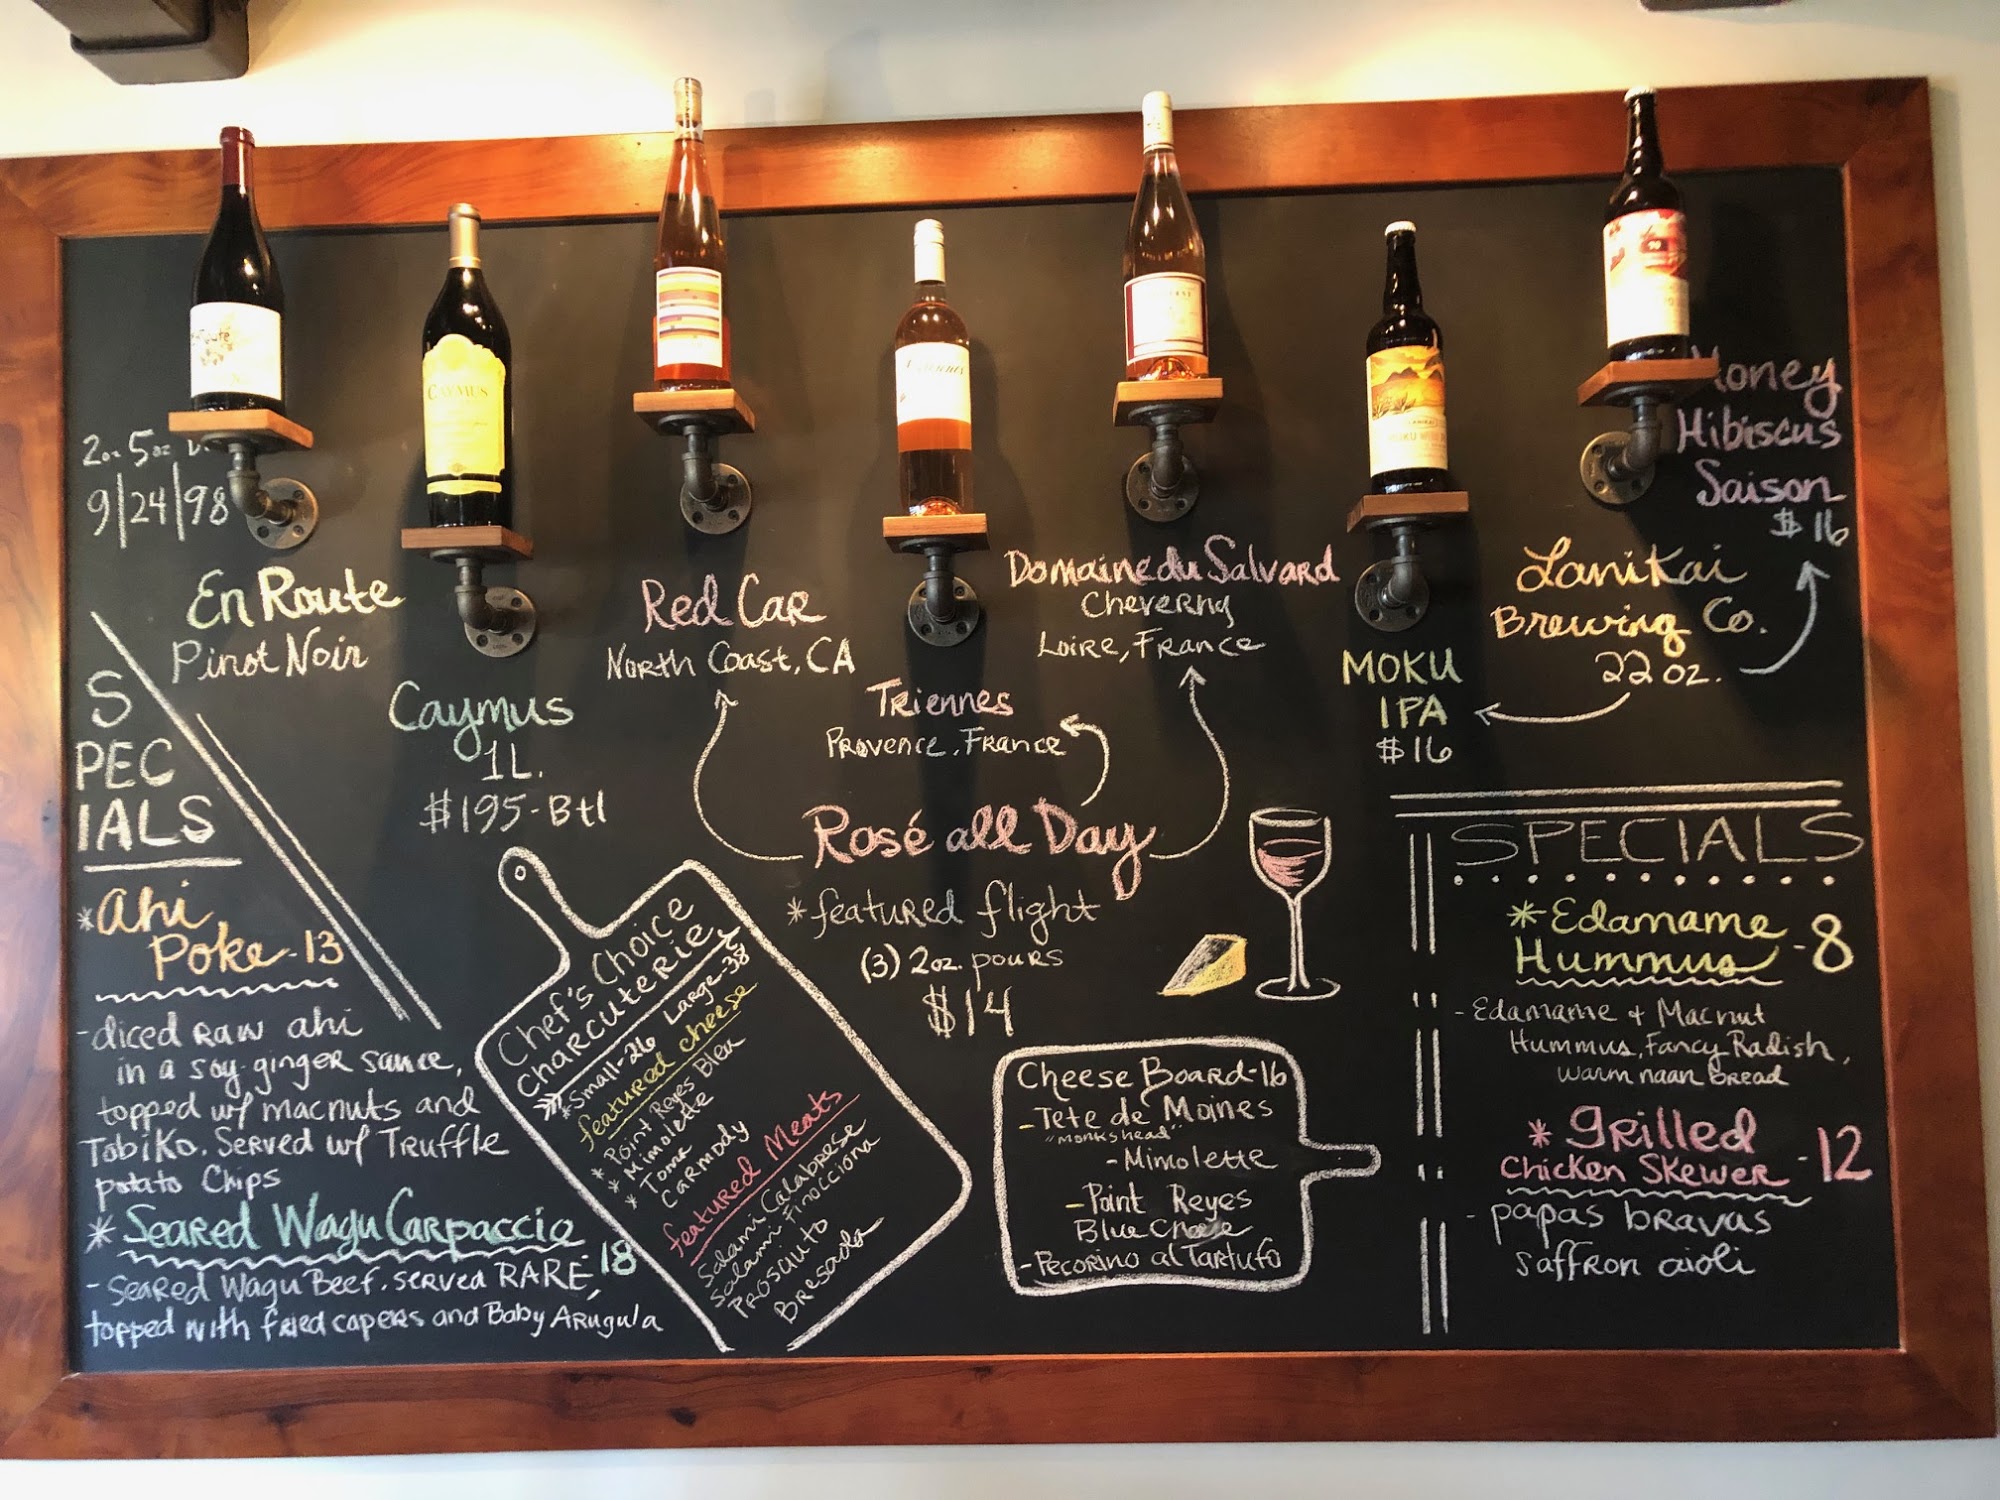 En Route
CAYMUS
2oz 5oz
9|24|98
En Route
Pinot Noir
Caymus
1L.
$195-Btl
Red Car
North Coast, CA
Triennes
Provence, France
Domaine du Salvard
Cheverny
Loire, France
Rosé all Day
*featured flight
(3) 2oz. pours
$14
MOKU
IPA
$16
Lanikai
Brewing Co.
22 oz.
Honey
Hibiscus
Saison
$16
S
PEC
IALS
*Ahi
Poke-13
-diced raw ahi
in a soy-ginger sauce,
topped w/ macnuts and
Tobiko. Served w/ Truffle
potato Chips
*Seared Wagu Carpaccio
-18
-Seared Wagu Beef. served RARE,
topped with fried capers and Baby Arugula
Chef's Choice
Charcuterie
*Small-26 Large-38
featured cheese
* Point Reyes Bleu
* Mimolette
* Toma
Carmody
featured Meats
Salami Calabrese
Salami Finocciona
Prosciuto
Bresaola
Cheese Board-16
-Tete de Moines
"monkshead"
-Mimolette
-Point Reyes
Blue Cheese
-Pecorino al Tartufo
SPECIALS
*Edamame
Hummus -8
-Edamame + Macnut
Hummus, Fancy Radish,
warm naan Bread
*grilled
Chicken Skewer -12
-papas bravas
saffron aioli